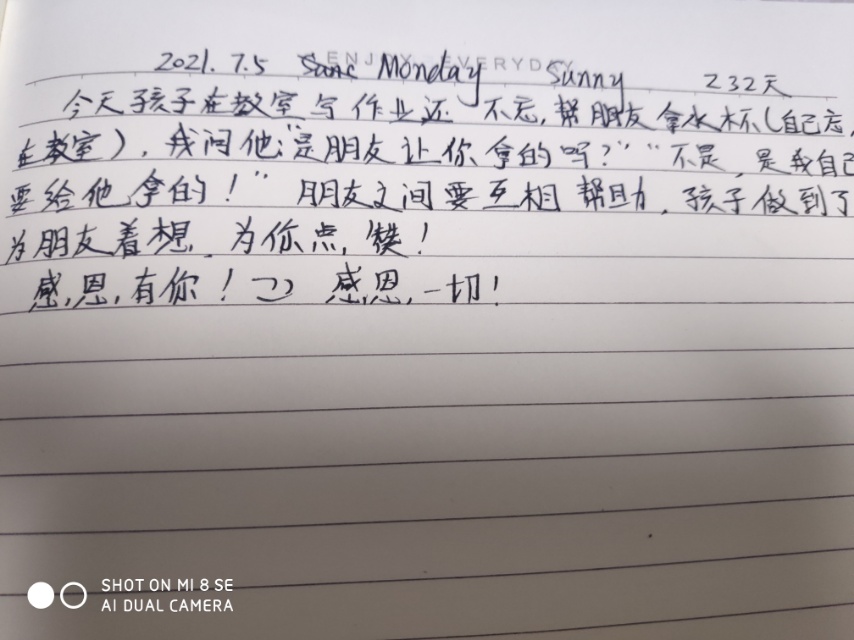 ENJOY EVERYDAY
2021.7.5 Monday Sunny 232天
今天孩子在教室写作业还不忘,帮朋友拿水杯(自己忘,
在教室),我问他:"是朋友让你拿的吗?""不是,是我自己
要给他拿的!"朋友之间要互相帮助,孩子做到了
为朋友着想.为你点赞!
感,恩,有你!感恩,一切!
SHOT ON MI 8 SE
AI DUAL CAMERA